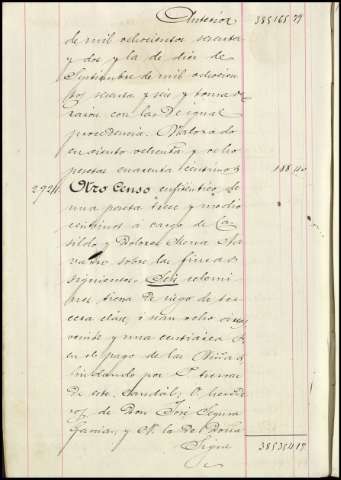 Anterior 385165 79
de mil ochocientos sesenta
y dos y la de diez de
Septiembre de mil ochocien
tos sesenta y seis y toma de
razon con las De igual
procedencia. Valorado
en ciento ochenta y ocho
pesetas cuarenta centimos 188,40
292 Otro Censo enfiteutico de
una peseta trece y medio
centimos á cargo de Ca
sildo y Dolores Sierra
sobre las fincas
siguientes. Seis celemi
nes tierra de riego de ter
cera clase, ó sean ocho areas
veinte y una centiarea
en el pago de las Viñas
lindando por P. tierras
de este caudal; O. herede
ros de Don José Segura
Garcia, y N. la del Doña
Sigue 385354 19